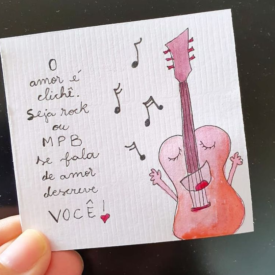 O
amor é
clichê.
Seja rock
ou
MPB
se fala
de amor
descreve
VOCÊ!